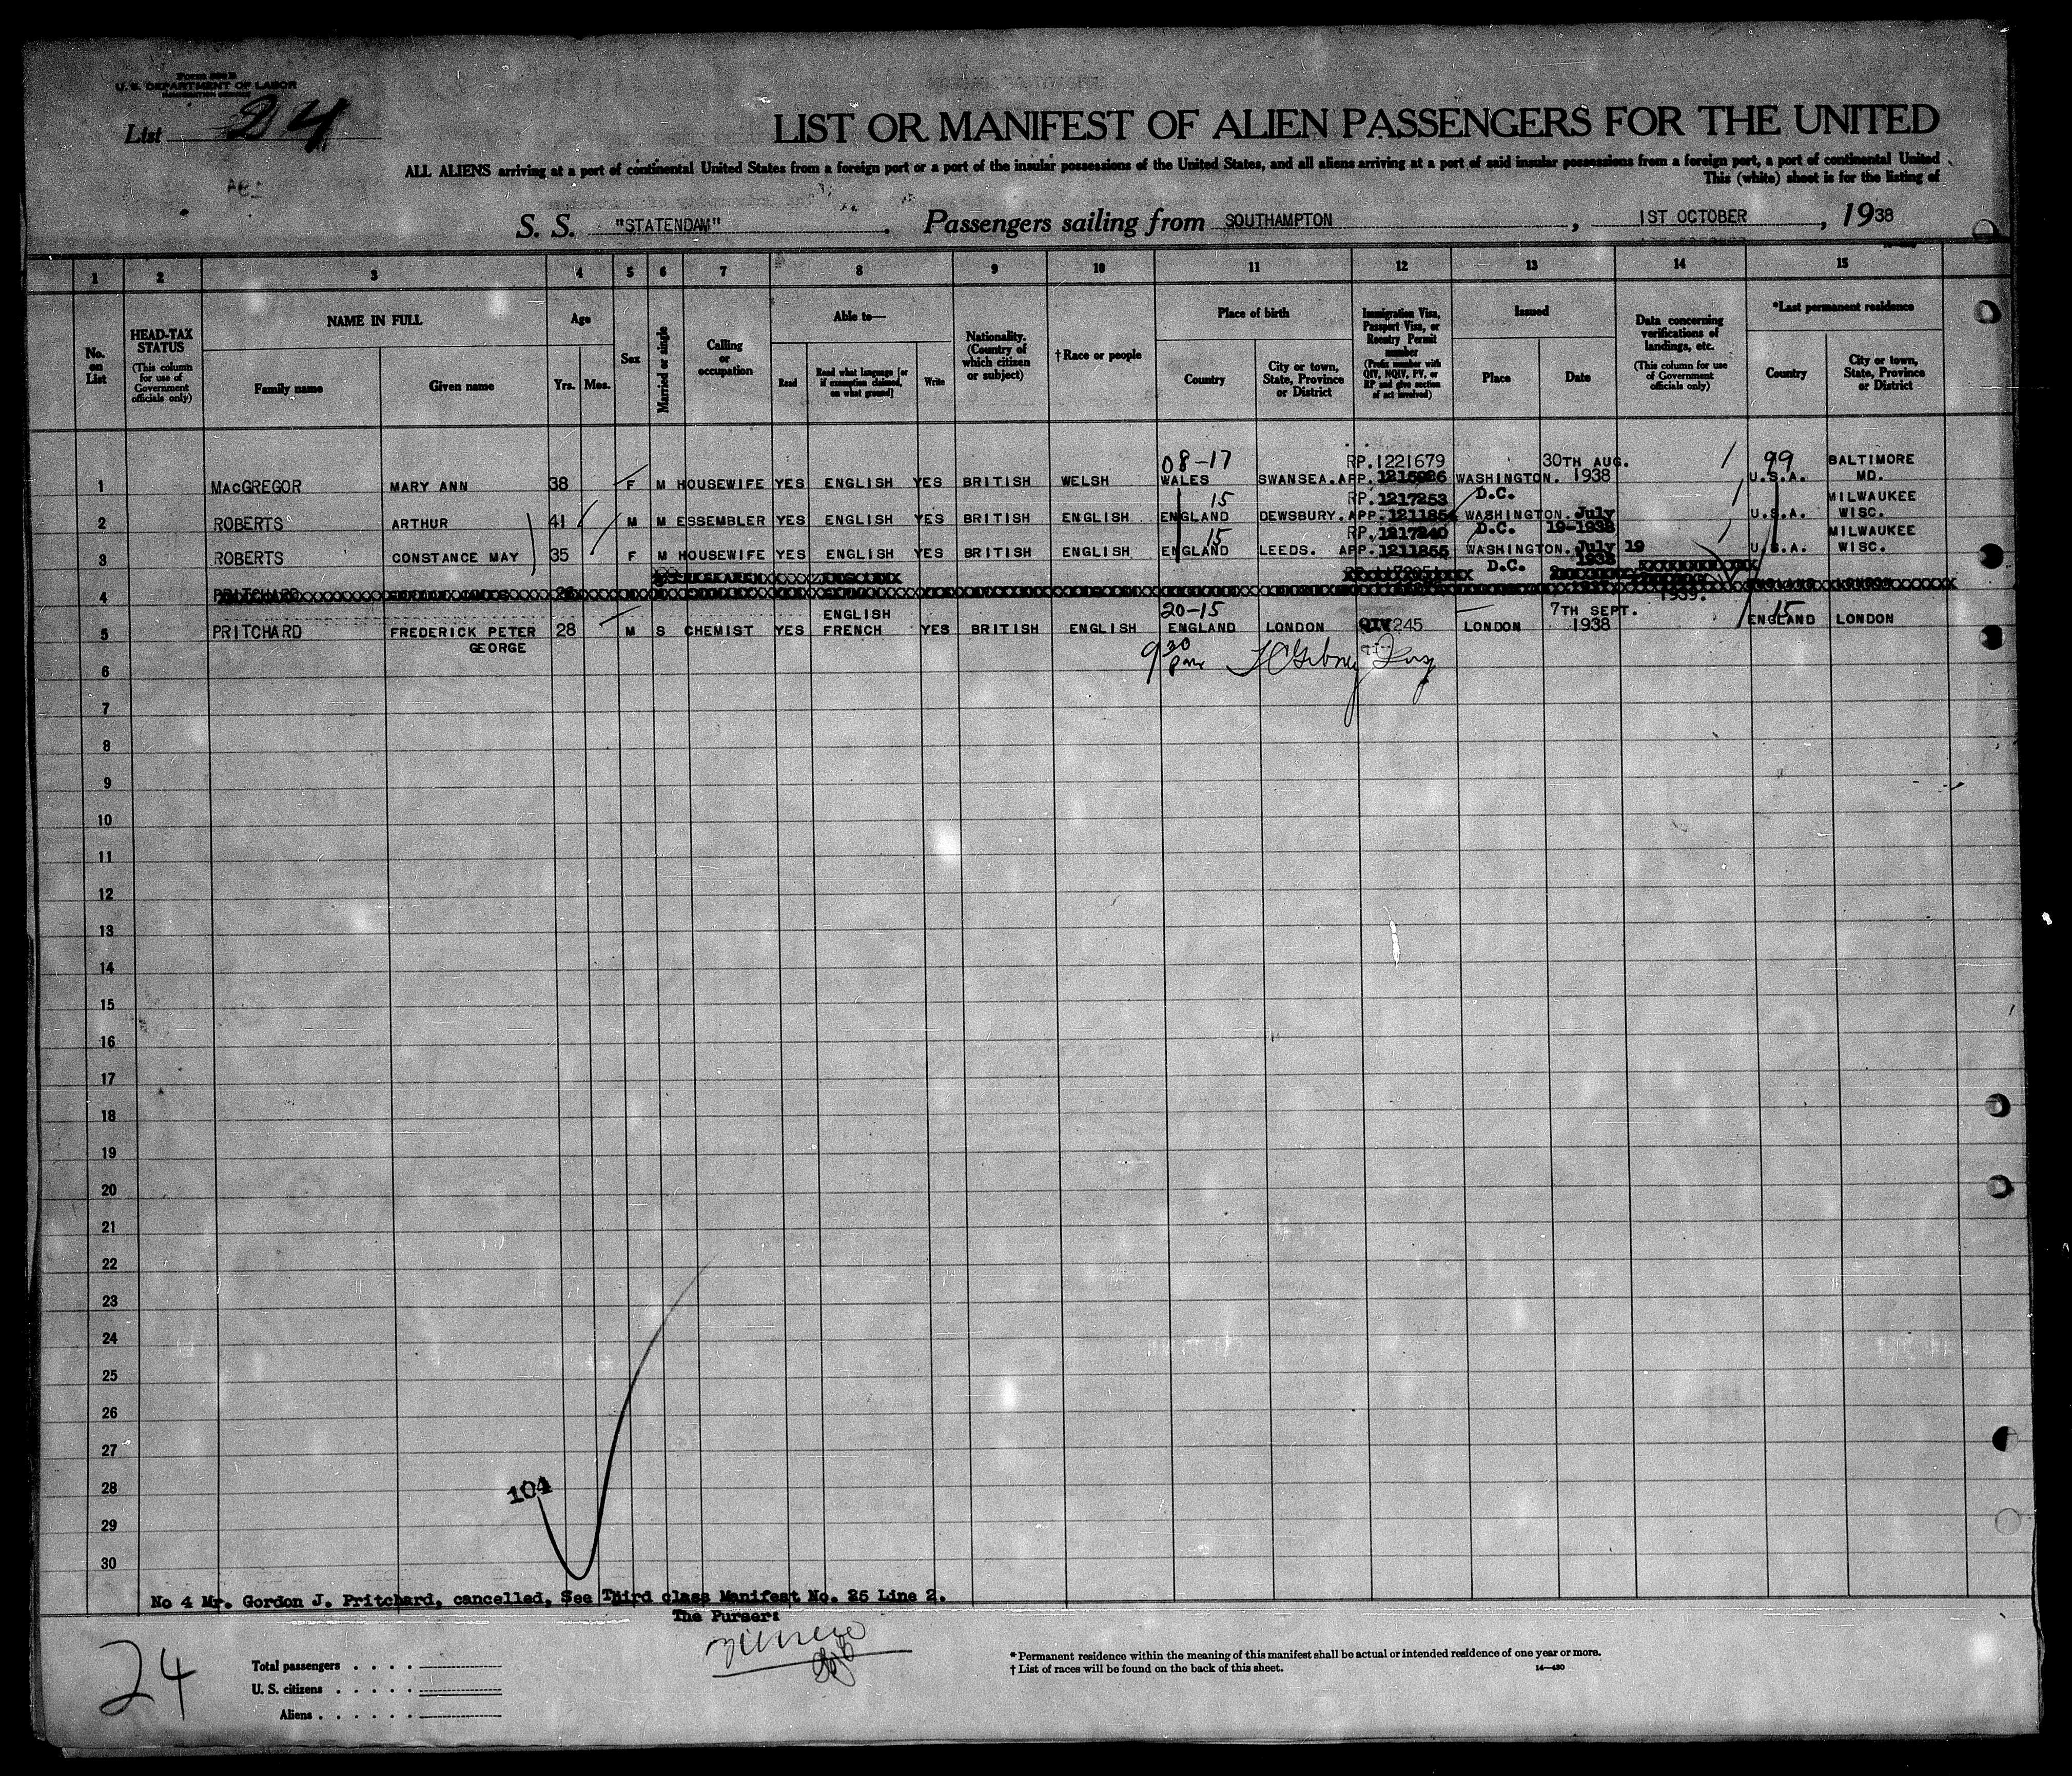 Form 500 B
U. S. DEPARTMENT OF LABOR
IMMIGRATION SERVICE
List 24
LIST OR MANIFEST OF ALIEN PASSENGERS FOR THE UNITED
ALL ALIENS arriving at a port of continental United States from a foreign port or a port of the insular possessions of the United States, and all aliens arriving at a port of said insular possessions from a foreign port, a port of continental United
This (white) sheet is for the listing of
S. S. "STATENDAM" . Passengers sailing from SOUTHAMPTON , 1ST OCTOBER , 1938
1 2 3 4 5 6 7 8 9 10 11 12 13 14 15
No. on List
HEAD-TAX STATUS
(This column for use of Government officials only)
NAME IN FULL
Family name
Given name
Age
Yrs. Mos.
Sex
Married or single
Calling or occupation
Able to—
Read
Read what language [or if exemption claimed, on what ground]
Write
Nationality. (Country of which citizen or subject)
†Race or people
Place of birth
Country
City or town, State, Province or District
Immigration Visa, Passport Visa, or Reentry Permit number
(Prefix number with QIV, NQIV, PV, or RP and give section of act involved)
Issued
Place
Date
Data concerning verifications of landings, etc.
(This column for use of Government officials only)
*Last permanent residence
Country
City or town, State, Province or District
08-17 RP.1221679 30TH AUG. 99 BALTIMORE
1 MACGREGOR MARY ANN 38 F M HOUSEWIFE YES ENGLISH YES BRITISH WELSH WALES SWANSEA. APP. 1215926 WASHINGTON. 1938 U.S.A. MD.
15 RP. 1217253 D.C. MILWAUKEE
2 ROBERTS ARTHUR 41 M M ESSEMBLER YES ENGLISH YES BRITISH ENGLISH ENGLAND DEWSBURY. APP. 1211854 WASHINGTON. July U.S.A. WISC.
15 RP. 1217240 D.C. 19-1938 MILWAUKEE
3 ROBERTS CONSTANCE MAY 35 F M HOUSEWIFE YES ENGLISH YES BRITISH ENGLISH ENGLAND LEEDS. APP. 1211855 WASHINGTON. July 19 U.S.A. WISC.
D.C. 1938
4 PRITCHARD
1939.
ENGLISH 20-15 7TH SEPT. 15
5 PRITCHARD FREDERICK PETER 28 M S CHEMIST YES FRENCH YES BRITISH ENGLISH ENGLAND LONDON QIV 245 LONDON 1938 ENGLAND LONDON
GEORGE
6 9 30 pm
7
8
9
10
11
12
13
14
15
16
17
18
19
20
21
22
23
24
25
26
27
28
104
29
30
No 4 Mr. Gordon J. Pritchard, cancelled, See Third class Manifest No. 25 Line 2.
The Purser:
24
Total passengers . . . .
U. S. citizens . . . . .
Aliens . . . . . .
* Permanent residence within the meaning of this manifest shall be actual or intended residence of one year or more.
† List of races will be found on the back of this sheet.
14—430